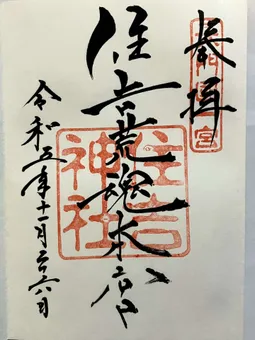 奉拝
住吉荒魂本宮
住吉神社
令和五年十一月二十六日